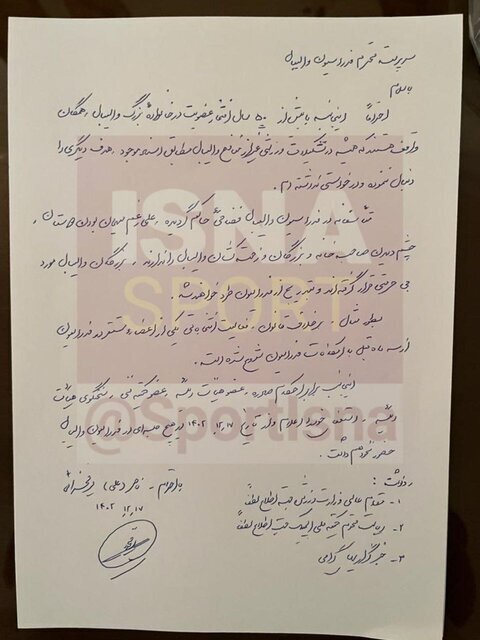 سرپرست محترم فدراسیون والیبال
باسلام
احتراماً اینجانب با بیش از ۵۰ سال افتخار عضویت در خانواده بزرگ والیبال، همگان
واقف هستند که همیشه در تشکیلات ورزشی غیر از منافع والیبال مطابق اسناد موجود، هدف دیگری را
دنبال ننموده و درخواستی نداشته ام.
متأسفانه در فدراسیون والیبال فضایی حاکم گردیده، علی رغم میهمان بودن دوستان،
چشم دیدن صاحب خانه و بزرگان و زحمت کشان والیبال را ندارند، بزرگان والیبال مورد
بی حرمتی قرار گرفته اند و بتدریج از فدراسیون طرد خواهند شد.
بطور مثال برخلاف قانون، فعالیت انتخاباتی یکی از اعضاء مستقر در فدراسیون
از سه ماه قبل با امکانات فدراسیون شروع شده است.
اینجانب برابر احکام صادره، عضو هیات رئیسه، عضو کمیته فنی، سخنگوی هیات
رئیسه، استعفای خود را اعلام و از تاریخ ۱۴۰۲،۱۲،۱۷ در هیچ جلسه ای در فدراسیون والیبال
حضور نخواهم داشت.
با احترام - ناصر (علی)
۱۴۰۲،۱۲،۱۷
رونوشت:
۱- مقام عالی وزارت ورزش جهت اطلاع لطفاً
۲- ریاست محترم کمیته ملی المپیک جهت اطلاع لطفاً
۳- خبرگزاریهای گرامی
ISNA
SPORT
@SportIsna